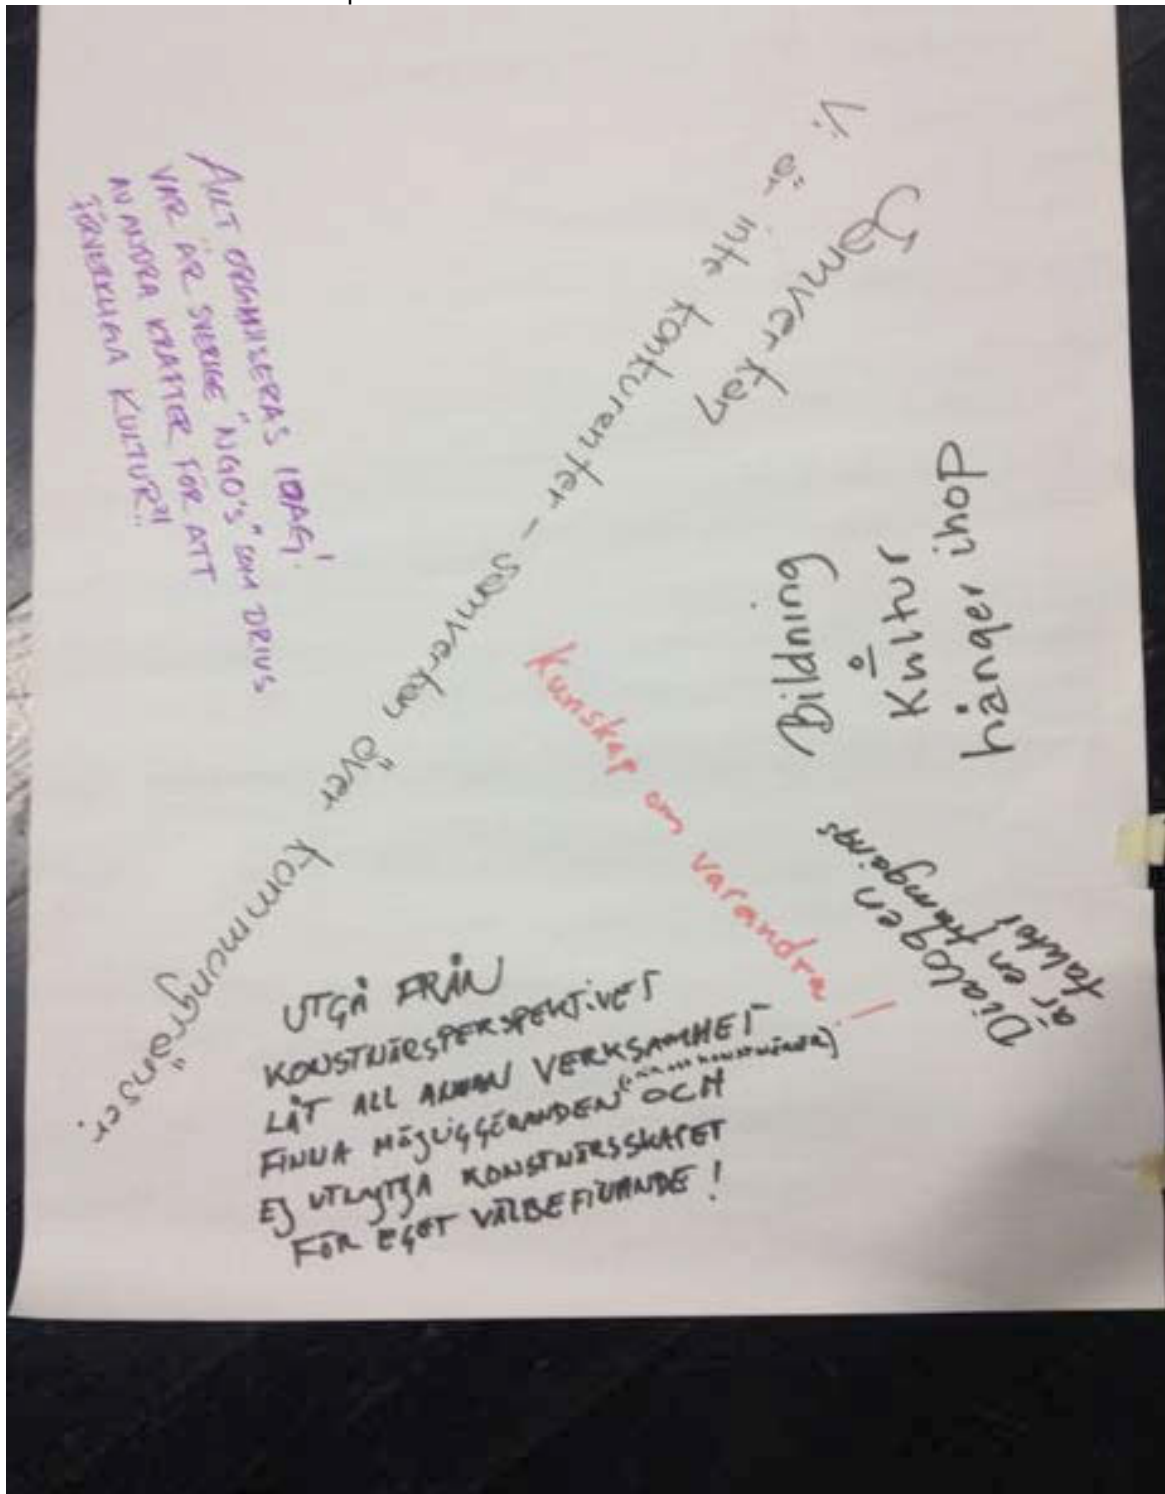 Vi är inte konkurenter – samverkan över kommungränser.
Samverkan
ALLT ORGANISERAS IDAG!
VAR ÄR SVERIGE "NGO'S" SOM DRIVS
AV ANDRA KRAFTER FÖR ATT
FÖRVERKLIGA KULTUR?!
Bildning
&
Kultur
hänger ihop
Kunskap om varandra!
Dialogen
är en framgångs
faktor
UTGÅ FRÅN
KONSTNÄRSPERSPEKTIVET
LÅT ALL ANNAN VERKSAMHET
FINNA MÖJLIGGÖRANDEN OCH
EJ UTNYTTJA KONSTNÄRSSKAPET
FÖR EGET VÄLBEFINNANDE!